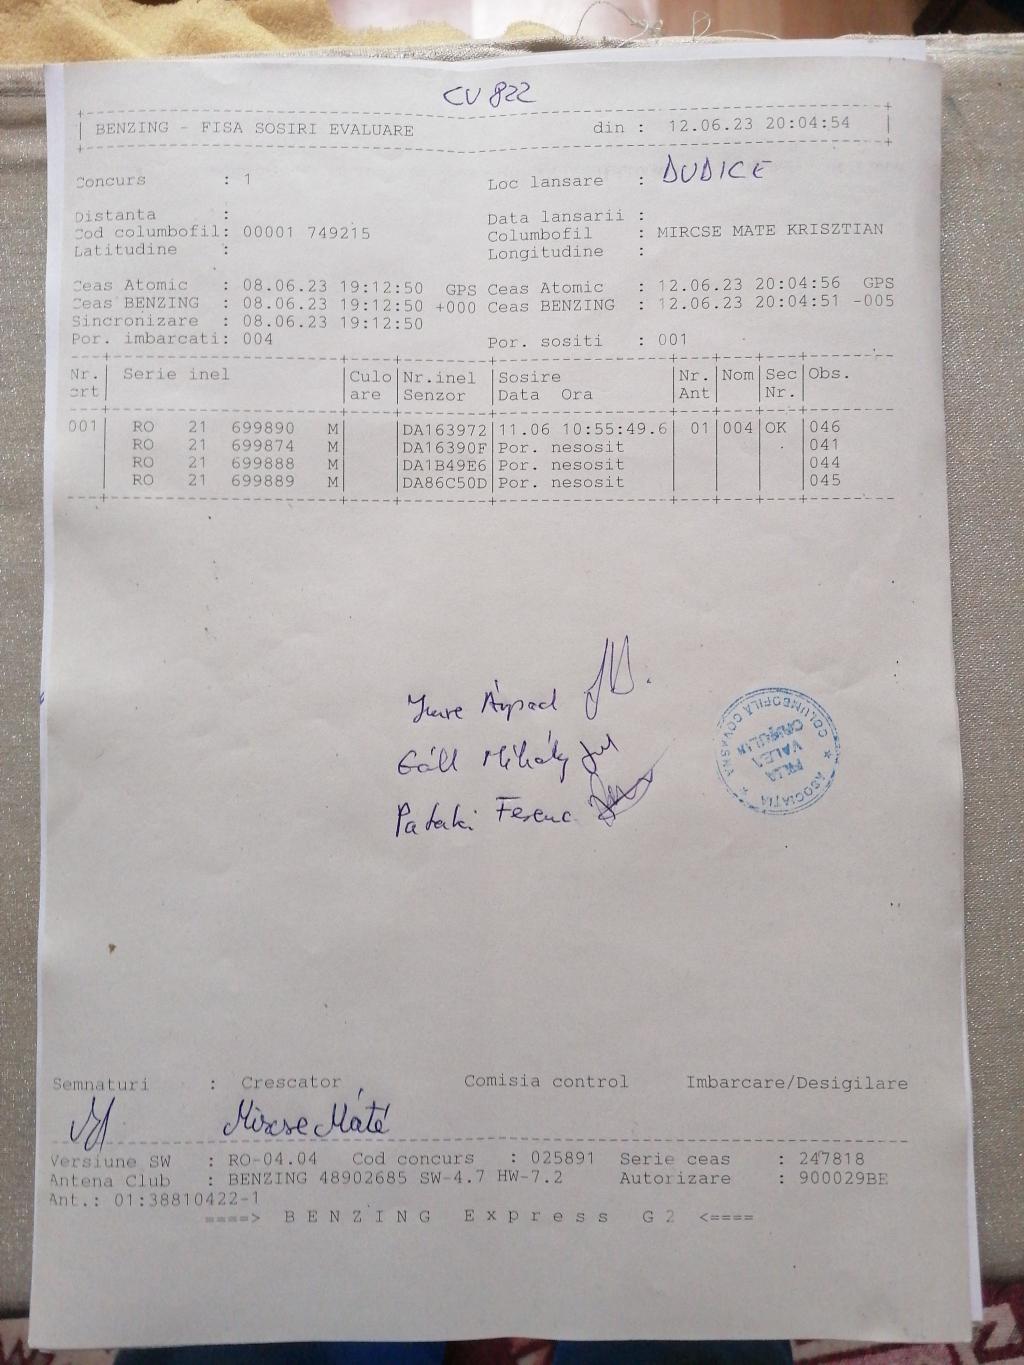 CV 822
BENZING - FISA SOSIRI EVALUARE din : 12.06.23 20:04:54
Concurs : 1 Loc lansare : DUDICE
Distanta : Data lansarii :
Cod columbofil: 00001 749215 Columbofil : MIRCSE MATE KRISZTIAN
Latitudine : Longitudine :
Ceas Atomic : 08.06.23 19:12:50 GPS Ceas Atomic : 12.06.23 20:04:56 GPS
Ceas BENZING : 08.06.23 19:12:50 +000 Ceas BENZING : 12.06.23 20:04:51 -005
Sincronizare : 08.06.23 19:12:50
Por. imbarcati: 004 Por. sositi : 001
Nr. Serie inel Culo Nr.inel Sosire Nr. Nom Sec Obs.
crt are Senzor Data Ora Ant Nr.
001 RO 21 699890 M DA163972 11.06 10:55:49.6 01 004 OK 046
RO 21 699874 M DA16390F Por. nesosit 041
RO 21 699888 M DA1B49E6 Por. nesosit 044
RO 21 699889 M DA86C50D Por. nesosit 045
Imre Árpád
Gáll Mihály
Pataki Ferenc
ASOCIATIA COLUMBOFILA COVASNA
FILIA
VALEA
Semnaturi : Crescator Comisia control Imbarcare/Desigilare
Mircse Máté
Versiune SW : RO-04.04 Cod concurs : 025891 Serie ceas : 247818
Antena Club : BENZING 48902685 SW-4.7 HW-7.2 Autorizare : 900029BE
Ant.: 01:38810422-1
====> BENZING Express G2 <====